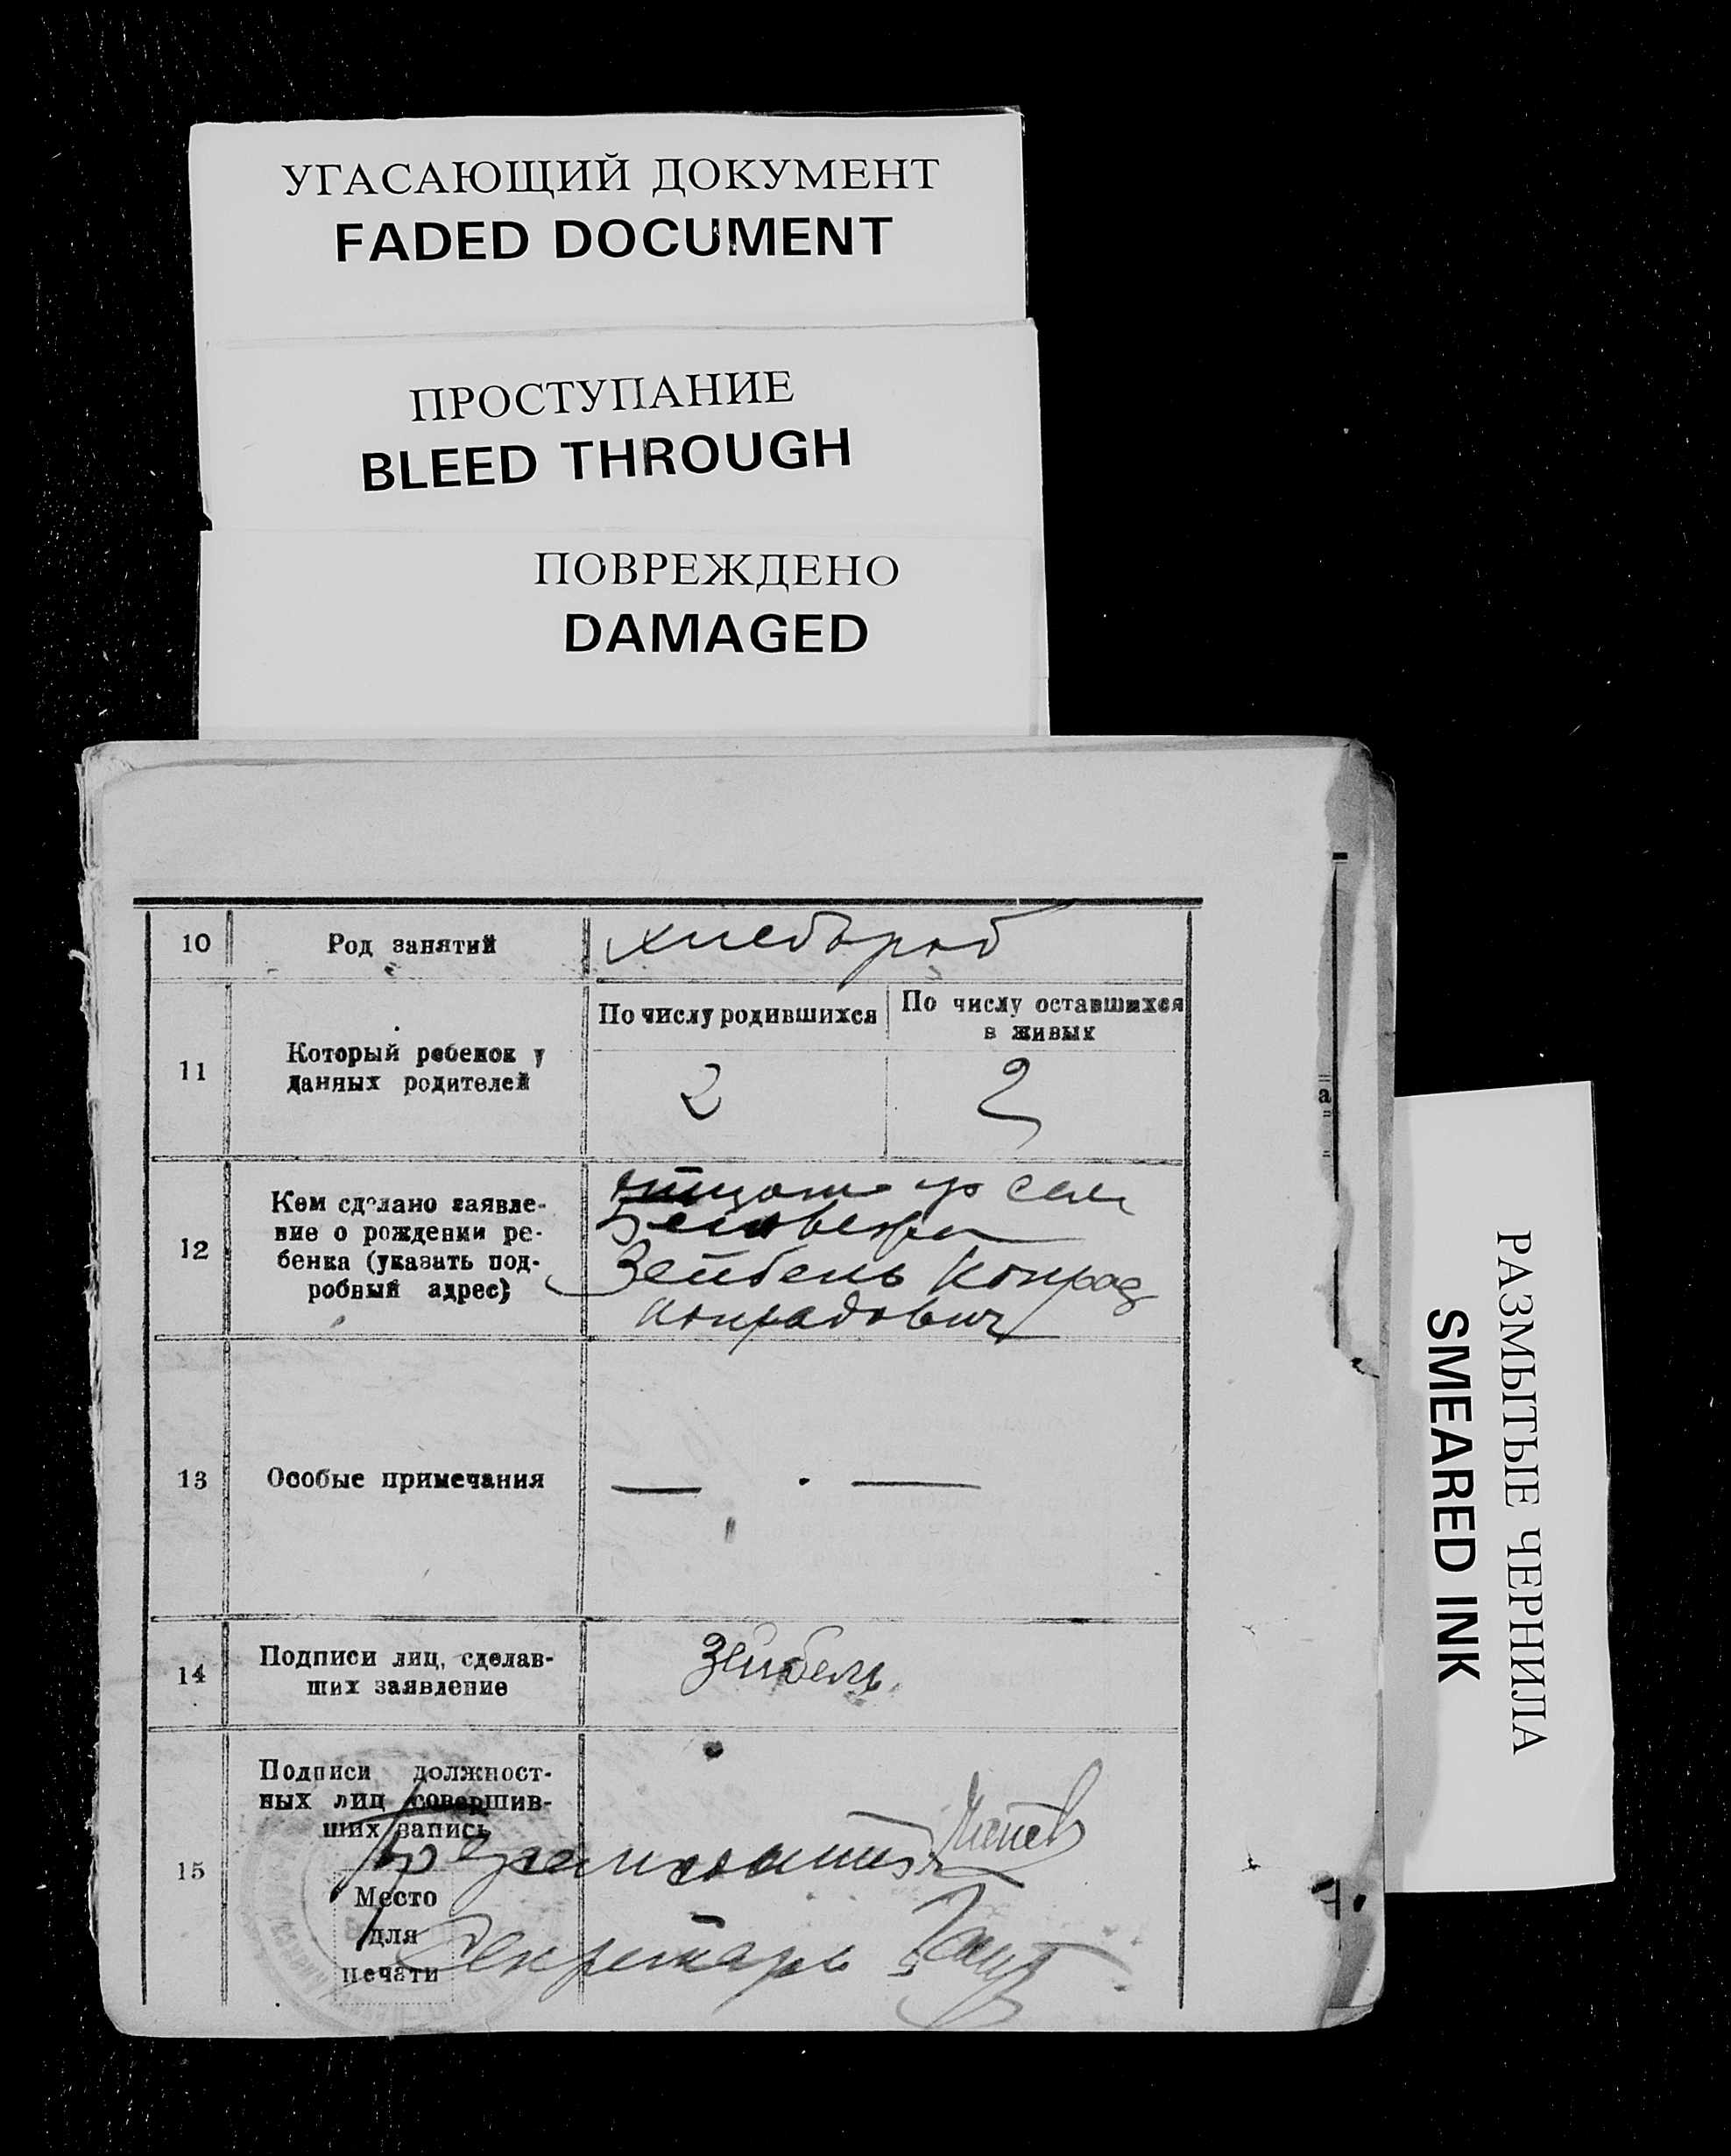 УГАСАЮЩИЙ ДОКУМЕНТ
FADED DOCUMENT
ПРОСТУПАНИЕ
BLEED THROUGH
ПОВРЕЖДЕНО
DAMAGED
10 Род занятий хлебороб
11 Который ребенок у
данных родителей
По числу родившихся
По числу оставшихся
в живых
2 2
12 Кем сделано заявле-
ние о рождении ре-
бенка (указать под-
робный адрес)
Зейбель Конрад
Конрадович
13 Особые примечания — . —
14 Подписи лиц, сделав-
ших заявление
Зейбель
15 Подписи должност-
ных лиц совершив-
ших запись
Место
для
печати
Секретарь
а
РАЗМЫТЫЕ ЧЕРНИЛА
SMEARED INK